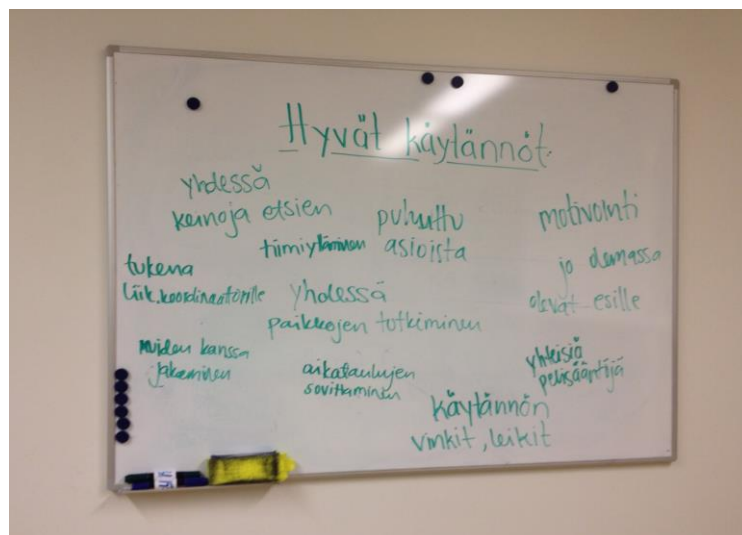 Hyvät käytännöt.
yhdessä
keinoja etsien
puhuttu
asioista
motivointi
tiimiytäminen
jo olemassa
olevat esille
tukena
Liik.koordinaattorille
yhdessä
paikkojen tutkiminen
muiden kanssa
jakaminen
aikataulujen
sovittaminen
yhteisiä
pelisääntöjä
käytännön
vinkit, leikit